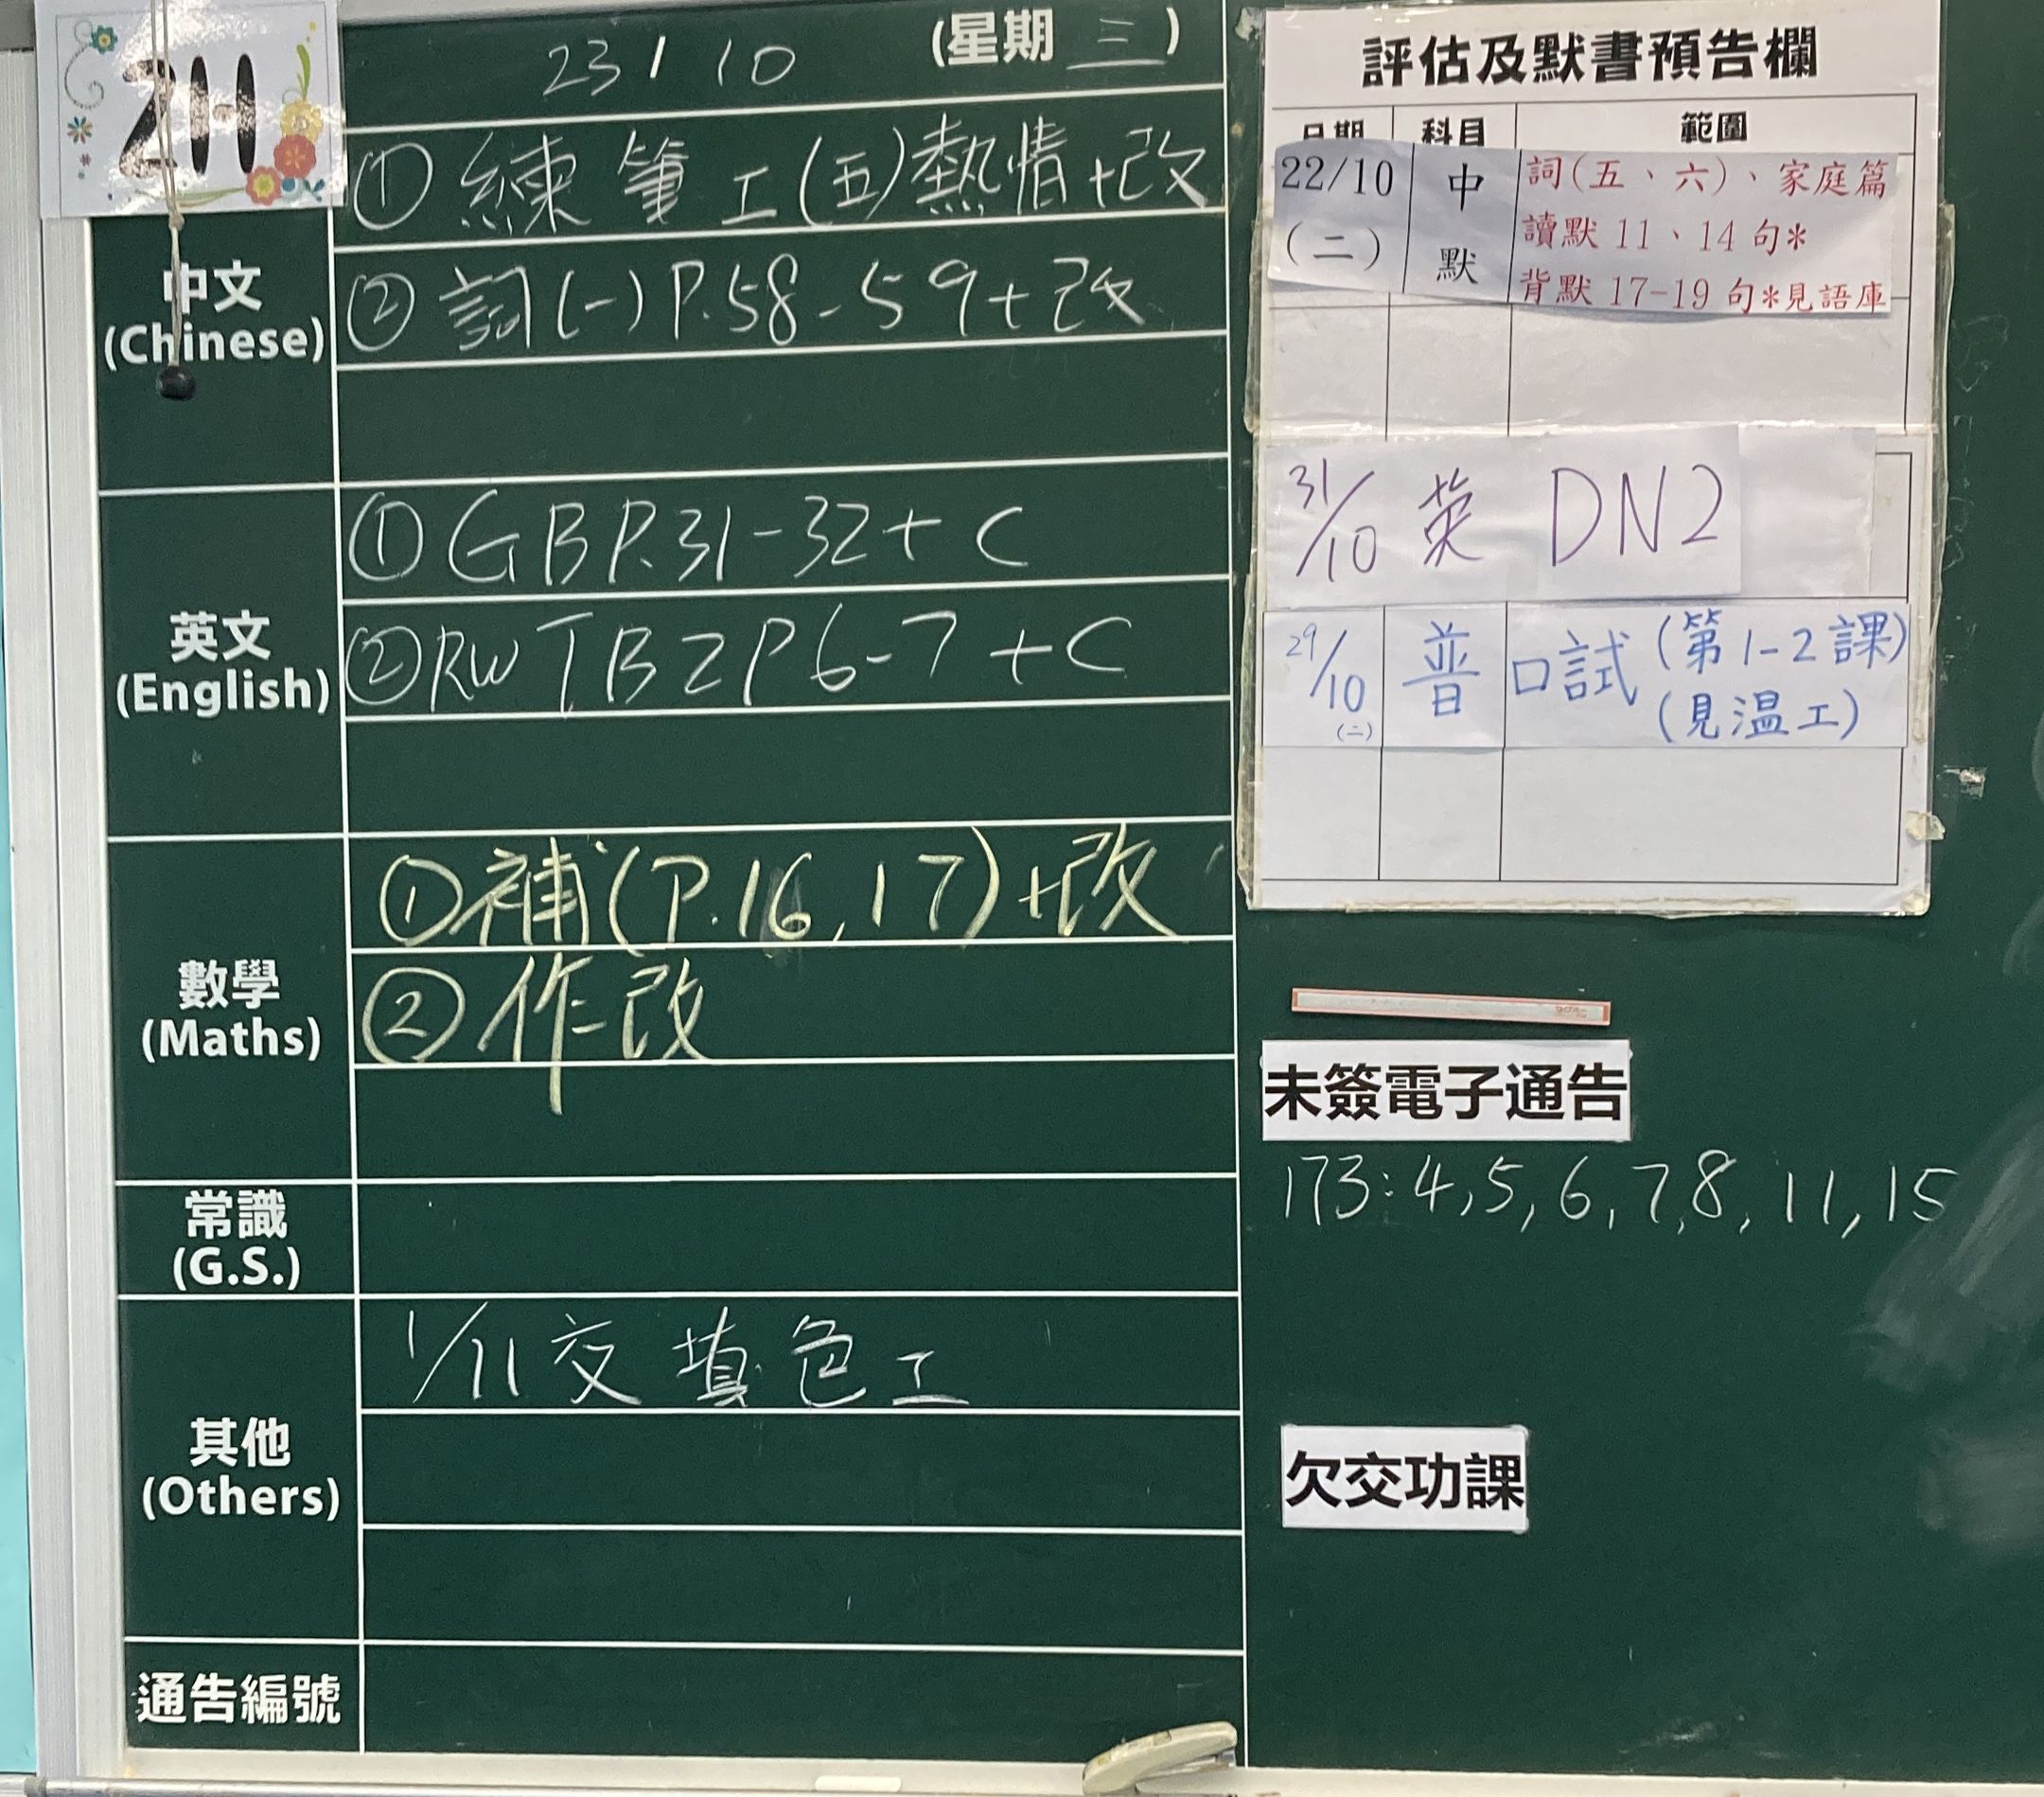 2H
23 / 10 (星期三)
中文
(Chinese)
① 練筆工(五)熱情+改
② 詞(一)P.58-59+改
英文
(English)
① GB P.31-32+C
② RWTB2 P6-7+C
數學
(Maths)
① 補(P.16,17)+改
② 作改
常識
(G.S.)
其他
(Others)
1/11交填色工
通告編號
評估及默書預告欄
日期 科目 範圍
22/10 (二) 中默 詞(五、六)、家庭篇
讀默 11、14 句*
背默 17-19 句*見語庫
31/10 英 DN2
29/10 (二) 普 口試 (第1-2課)
(見溫工)
未簽電子通告
173: 4, 5, 6, 7, 8, 11, 15
欠交功課